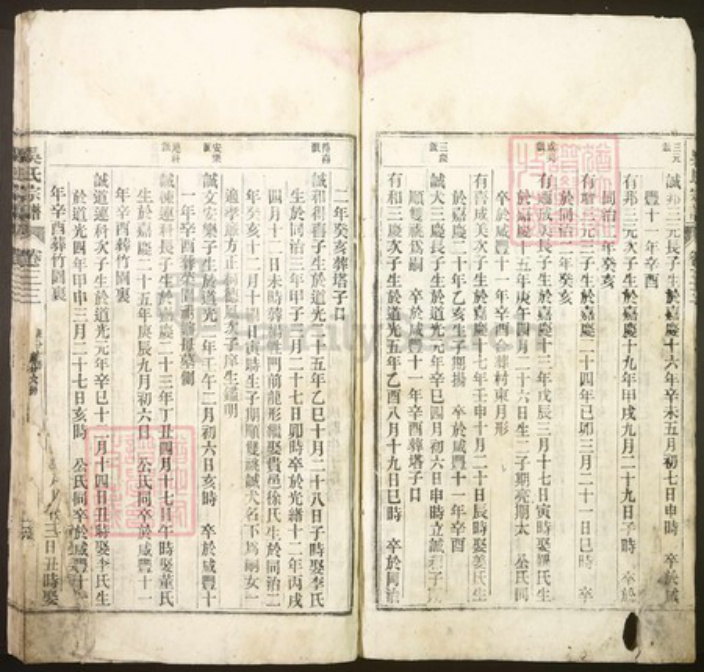 三元
誠邦三元長子生於嘉慶十六年辛未五月初七日申時 卒於咸
豐十一年辛酉
有邦三元次子生於嘉慶十九年甲戌九月二十九日子時 卒於
同治二年癸亥
三元三子生於嘉慶二十四年己卯三月二十一日巳時 卒
於同治二年癸亥
成美長子生於嘉慶十三年戊辰三月十七日寅時娶
於嘉慶十五年庚午四月二十六日生二子期亮期太 公氏同
卒於咸豐十一年辛酉合葬村東月形
有喜成美次子生於嘉慶十七年壬申十月二十日辰時娶姜氏生
於嘉慶二十年乙亥生子期揚 卒於咸豐十一年辛酉
三慶
誠大三慶長子生於道光元年辛巳四月初六日申時立誠和子期
順雙祧為嗣 卒於咸豐十一年辛酉葬塔子口
有和三慶次子生於道光五年乙酉八月十九日巳時 卒於同治
二年癸亥葬塔子口
誠和得喜子生於道光二十五年乙巳十月二十八日子時娶李氏
生於同治三年甲子二月二十七日卯時卒於光緒十二年丙戌
四月十二日未時葬門前龍形繼娶費邑徐氏生於同治二
年癸亥十二月十四日寅時生子期順雙祧誠大名下為嗣女一
適孝廉方正次子庠生鑑明
安樂
誠文安樂子生於道光二年壬午二月初六日亥時 卒於咸豐十
一年辛酉葬
連科
誠棟連科長子生於嘉慶二十二年丁丑四月十七日午時娶董氏
生於嘉慶二十五年庚辰九月初六日 公氏同卒於咸豐十一
年辛酉葬竹園裏
誠道連科次子生於道光元年辛巳十一月十四日丑時娶李氏生
於道光四年甲申三月二十七日亥時 公氏同卒於咸豐十一
年辛酉葬竹園裏
三日丑時娶
吳氏宗譜